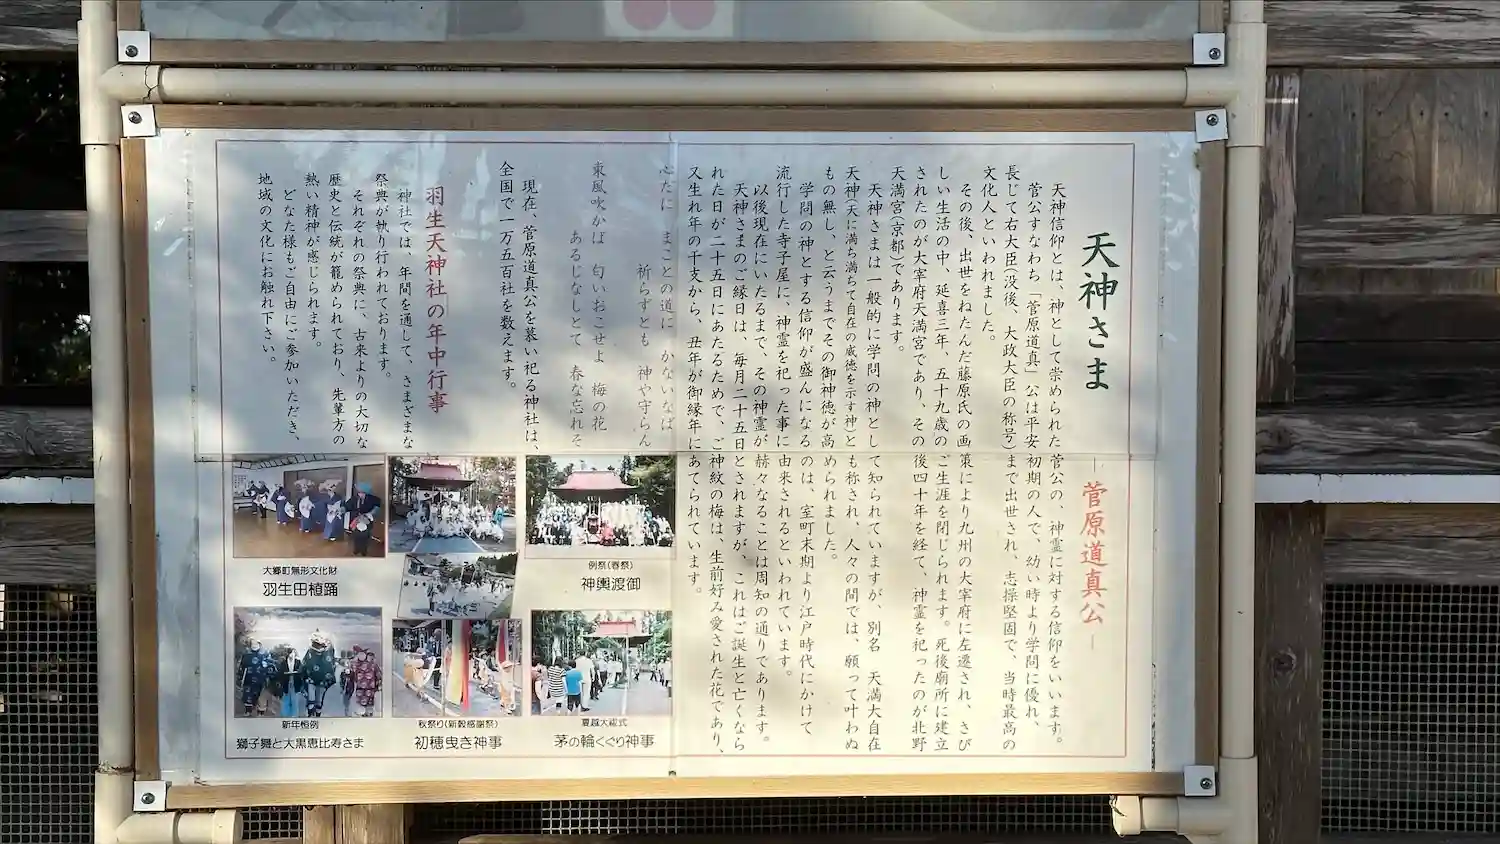 天神さま
―菅原道真公―
天神信仰とは、神として崇められた菅公の、神霊に対する信仰をいいます。
菅公すなわち「菅原道真」公は平安初期の人で、幼い時より学問に優れ、
長じて右大臣(没後、大政大臣の称号)まで出世され、志操堅固で、当時最高の
文化人といわれました。
その後、出世をねたんだ藤原氏の画策により九州の大宰府に左遷され、さび
しい生活の中、延喜三年、五十九歳のご生涯を閉じられます。死後廟所に建立
されたのが大宰府天満宮であり、その後四十年を経て、神霊を祀ったのが北野
天満宮(京都)であります。
天神さまは一般的に学問の神として知られていますが、別名 天満大自在
天神(天に満ち満ちて自在の威徳を示す神)とも称され、人々の間では、願って叶わぬ
もの無し、と云うまでその御神徳が高められました。
学問の神とする信仰が盛んになるのは、室町末期より江戸時代にかけて
流行した寺子屋に、神霊を祀った事に由来されるといわれています。
以後現在にいたるまで、その神霊が赫々なることは周知の通りであります。
天神さまのご縁日は、毎月二十五日とされますが、これはご誕生と亡くなら
れた日が二十五日にあたるためで、ご神紋の梅は、生前好み愛された花であり、
又生れ年の干支から、丑年が御縁年にあてられています。
心だに まことの道に かないなば
祈らずとも 神や守らん
東風吹かば 匂いおこせよ 梅の花
あるじなしとて 春な忘れそ
現在、菅原道真公を慕い祀る神社は、
全国で一万五百社を数えます。
羽生天神社の年中行事
神社では、年間を通して、さまざまな
祭典が執り行われております。
それぞれの祭典に、古来よりの大切な
歴史と伝統が籠められており、先輩方の
熱い精神が感じられます。
どなた様もご自由にご参加いただき、
地域の文化にお触れ下さい。
例祭(春祭)
神輿渡御
大郷町無形文化財
羽生田植踊
夏越大祓式
茅の輪くぐり神事
秋祭り(新穀感謝祭)
初穂曳き神事
新年恒例
獅子舞と大黒恵比寿さま